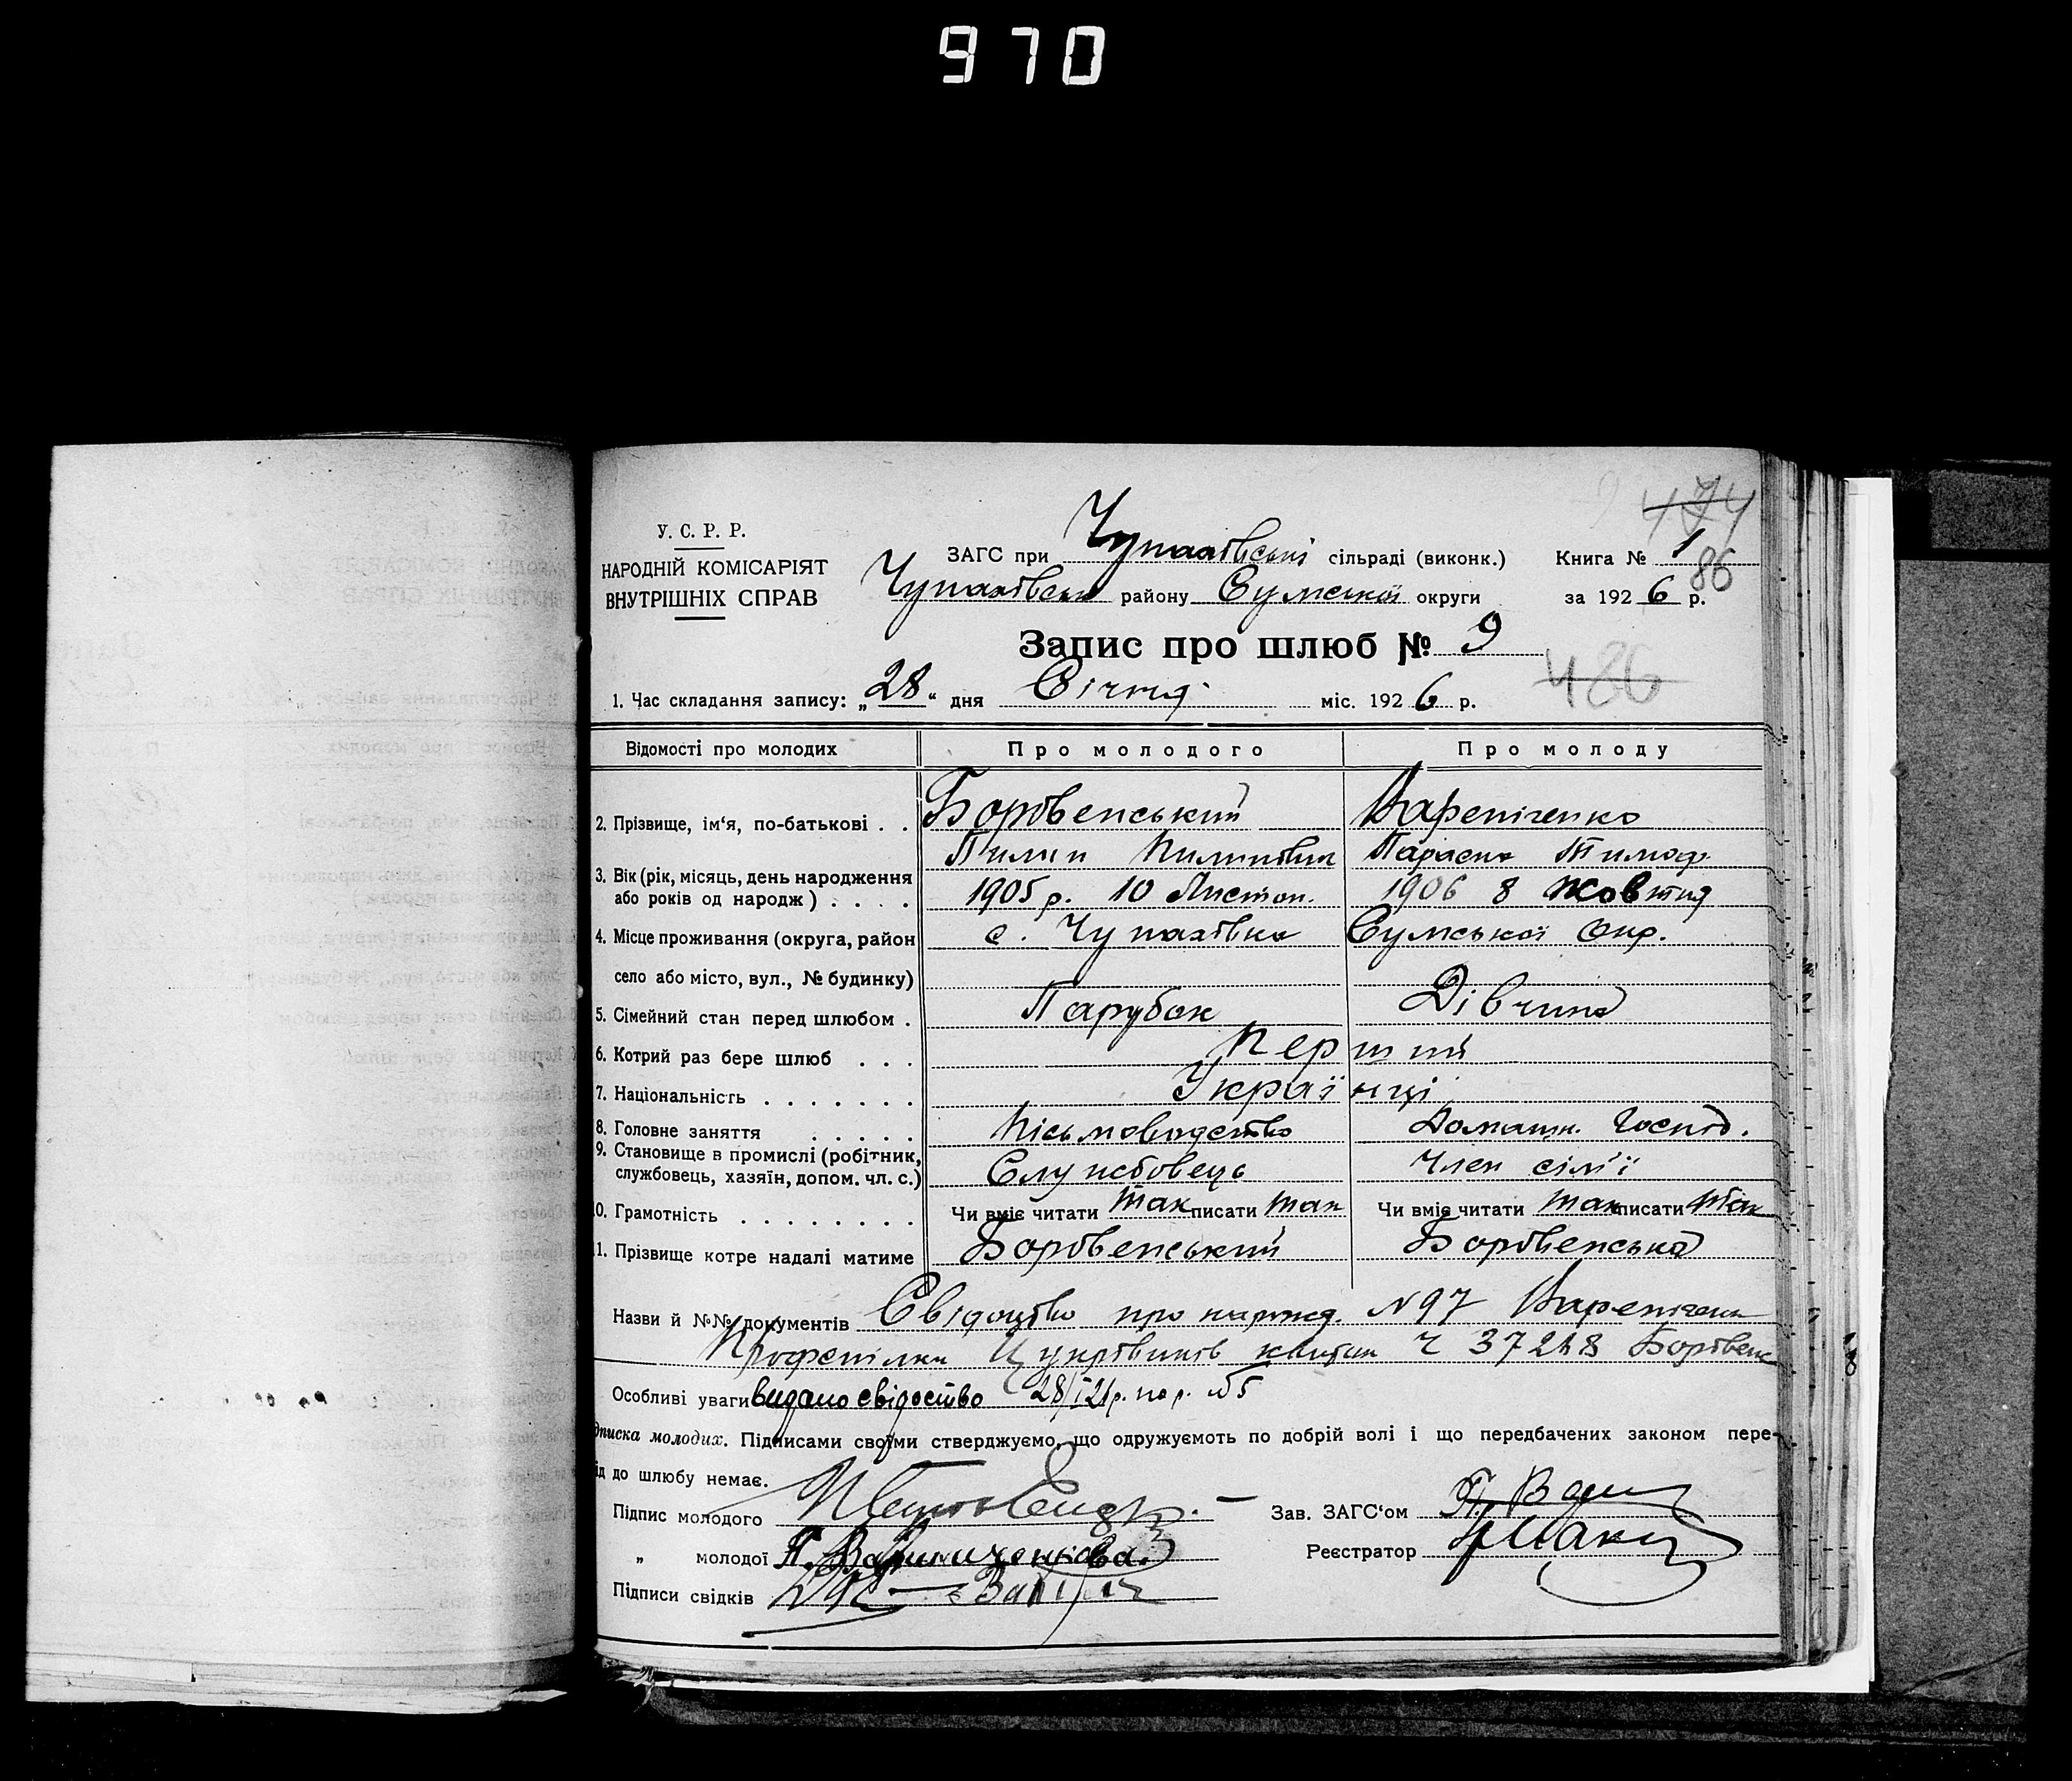 970
474
У. С. Р. Р.
НАРОДНІЙ КОМІСАРІЯТ
ВНУТРІШНІХ СПРАВ
ЗАГС при Чупахівській сільраді (виконк.) Книга № 1
86
Чупахівськ району Сумської округи за 1926 р.
Запис про шлюб № 9
486
1. Час складання запису: „28“ дня Січня міс. 1926 р.
Відомості про молодих Про молодого Про молоду
2. Прізвище, ім‘я, по-батькові . . Боровенський Вареніченко
Пилип Пилипович Параска Тимоф.
3. Вік (рік, місяць, день народження
або років од народж) . . . . 1905 р. 10 Листоп. 1906 8 Жовтня
4. Місце проживання (округа, район с. Чупахівка Сумської Окр.
село або місто, вул., № будинку)
5. Сімейний стан перед шлюбом . Парубок Дівчина
6. Котрий раз бере шлюб . . . Перший
7. Національність . . . . . . . Українці
8. Головне заняття . . . . . Пісьмоводство Домашн. Господ.
9. Становище в промислі (робітник,
службовець, хазяїн, допом. чл. с.) Службовець Член сім'ї
10. Грамотність . . . . . . . . Чи вміє читати так писати так Чи вміє читати так писати так
11. Прізвище котре надалі матиме Боровенський Боровенська
Назви й №№ документів Свідоцтво про народ. №97 Вареничен
Профспілки Цукровиків квиток Ч 37248 Боровенс
Особливі уваги видано свідоство 28/I 26р. по р. №5
дписка молодих. Підписами своїми стверджуємо, що одружуємоть по добрій волі і що передбачених законом пере-
ід до шлюбу немає.
Підпис молодого Зав. ЗАГС‘ом
„ молодої П. Реєстратор
Підписи свідків